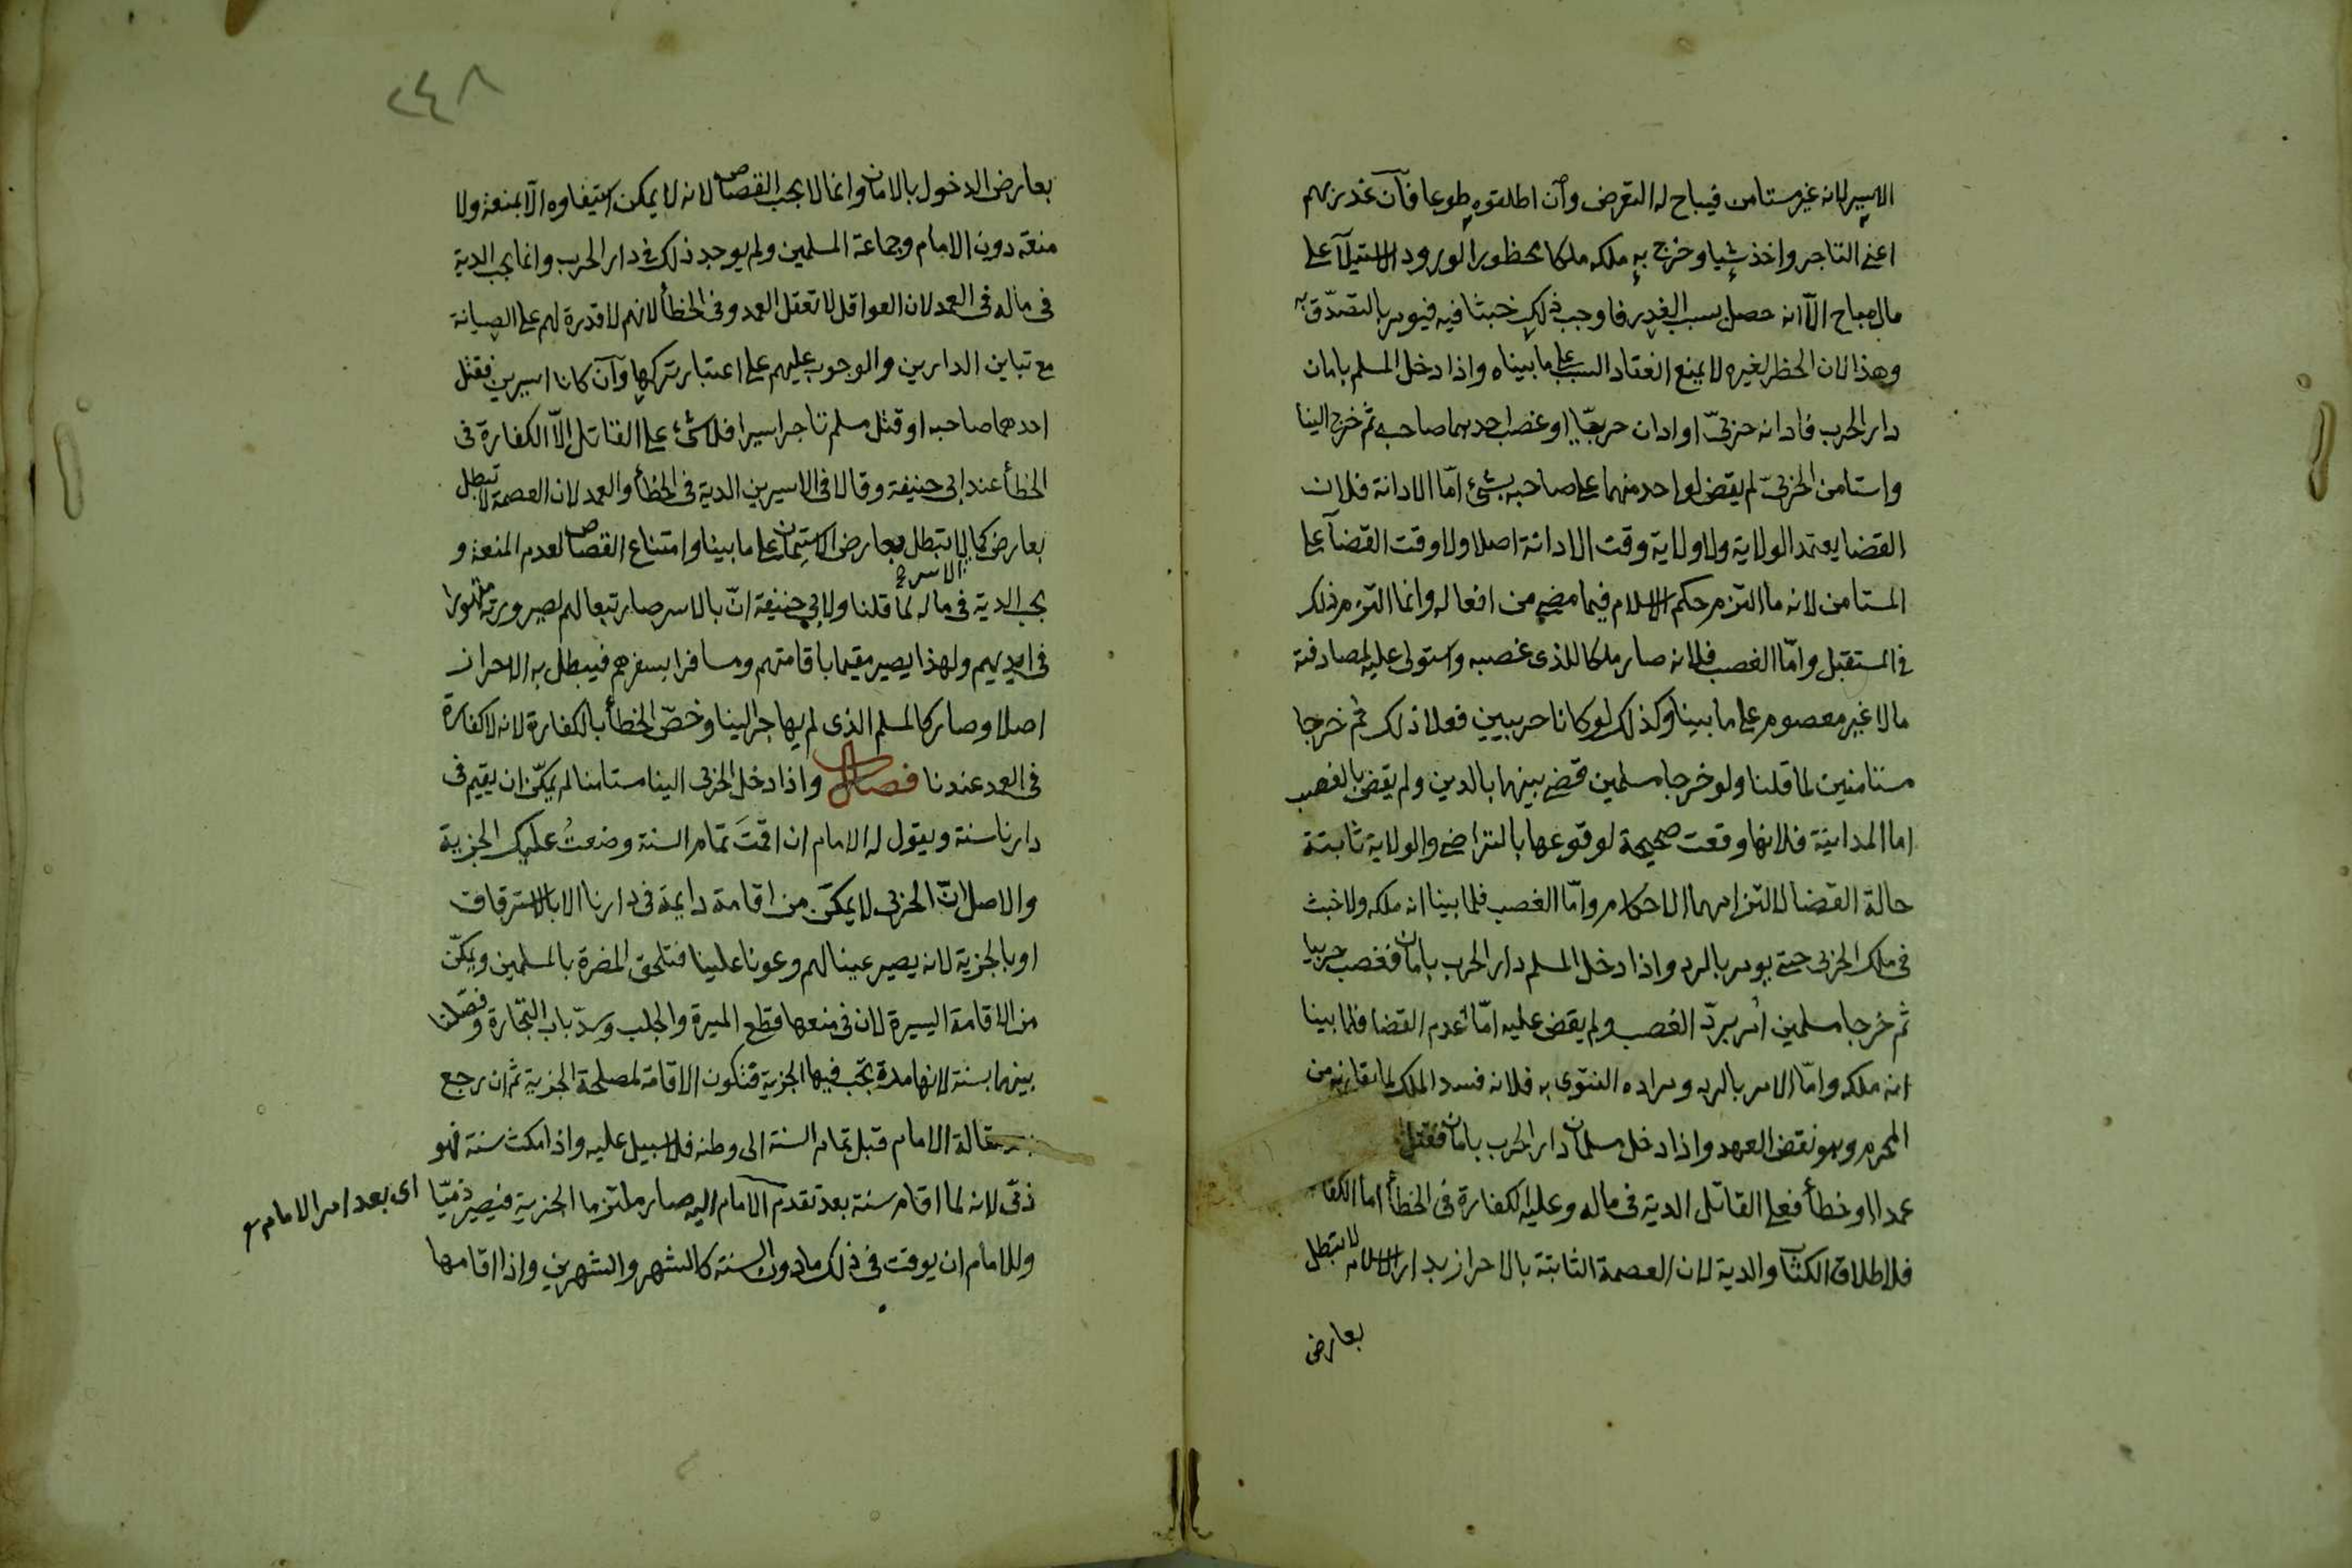 الاسير لانه غير مستامن فيباح له التعرض وان اطلقوه طوعا فان غدر بهم
اعني التاجر واخذ شيا وخرج به ملكه ملكا محظورا لورود الاستيلآ على
مال مباح الّا انه حصل بسبب الغدر فاوجب ذلك خبثا فيه فيومر بالتصدّق به
وهذا لان الحظر لغيره لا يمنع انعقاد السبب على ما بيناه واذا دخل المسلم بامان
دار الحرب فادانه حربيّ او ادان حربيّا او غصب احدهما صاحبه ثم خرج الينا
واستامن الحربيّ لم يقض لواحد منهما على صاحبه بشئ امّا الادانة فلان
القضا يعتمد الولاية ولا ولاية وقت الادانة اصلا ولا وقت القضآ على
المستامن لانه ما التزم حكم الاسلام فيما مضى من افعاله وانما التزم ذلك
في المستقبل وامّا الغصب فلانه صار ملكا للذى غصبه واستولى عليه لمصادفته
مالا غير معصوم على ما بينا وكذلك لو كانا حربيين فعلا ذلك ثم خرجا
مستامنين لما قلنا ولو خرجا مسلمين قضى بينهما بالدين ولم يقض بالغصب
اما المداينة فلانها وقعت صحيحة لوقوعها بالتراضى والولاية ثابتة
حالة القضا لالتزامهما الاحكام وامّا الغصب فلما بينا انه ملكه ولا خبث
فى ملك الحربى حتى يومر بالرد واذا دخل المسلم دار الحرب بامان فغصب حربيا
ثم خرجا مسلمين اُمر بردّ الغصب ولم يقض عليه امّا عدم القضا فلما بينا
انه ملكه وامّا الامر بالرد ومراده الفتوى به فلانه فسد الملك لما يقارنه من
المحرم وهو نقض العهد واذا دخل مسلمان دار الحرب بامان فقتل
عمدا او خطأ فعلى القاتل الدية فى ماله وعليه الكفارة فى الخطأ اما الكفا
فلاطلاق الكتاب والدية لان العصمة الثابتة بالاحراز بدار الاسلام لا تبطل
بعارض
٢٤٨
بعارض الدخول بالامان وانما لا يجب القصاص لانه لا يمكن استيفاوه الّا بمنعة ولا
منعة دون الامام وجماعة المسلمين ولم يوجد ذلك فى دار الحرب وانما يجب الدية
فى ماله فى العمد لان العواقل لا تعقل العمد وفى الخطأ لانهم لا قدرة لهم على الصيانة
مع تباين الدارين والوجوب عليهم على اعتبار تركها وآن كانا اسيرين فقتل
احدهما صاحبه او قتل مسلم تاجر اسيرا فلا شئ على القاتل الّا الكفارة فى
الخطأ عند ابى حنيفة وقالا فى الاسيرين الدية فى الخطأ والعمد لان العصمة لا تبطل
بعارض الاسر كما لا تبطل بعارض الاستيمان على ما بينا وامتناع القصاص لعدم المنعة و
يجب الدية فى ماله لما قلنا ولابي حنيفة انّ بالاسر صار تبعا لهم لصيرورته مقهورا
فى ايديهم ولهذا يصير مقيما باقامتهم ومسافرا بسفرهم فيبطل به الاحراز
اصلا وصار كالمسلم الذى لم يهاجر الينا وخصّ الخطأ بالكفارة لانه لا كفارة
فى العمد عندنا فصل واذا دخل الحربى الينا مستامنا لم يمكّن ان يقيم فى
دارنا سنة ويقول له الامام ان اقمتَ تمام السنة وضعتُ عليك الجزية
والاصل انّ الحربى لا يمكّن من اقامة دايمة فى دارنا الا بالاسترقاق
او بالجزية لانه يصير عينا لهم وعونا علينا فتلحق المضرة بالمسلمين ويمكّن
من الاقامة اليسيرة لان فى منعها قطع الميرة والجلب وسدّ باب التجارة وفصلنا
بينهما بسنة لانها مدة تجب فيها الجزية فتكون الاقامة لمصلحة الجزية ثم ان رجع
مقالة الامام قبل تمام السنة الى وطنه فلا سبيل عليه واذا مكث سنة فهو
ذمّى لانه لما اقام سنة بعد تقدم الامام اليه صار ملتزما الجزية فيصير ذميّا
اى بعد امر الامام
وللامام ان يوقت فى ذلك مادون السنة كالشهر والشهرين واذا اقامها